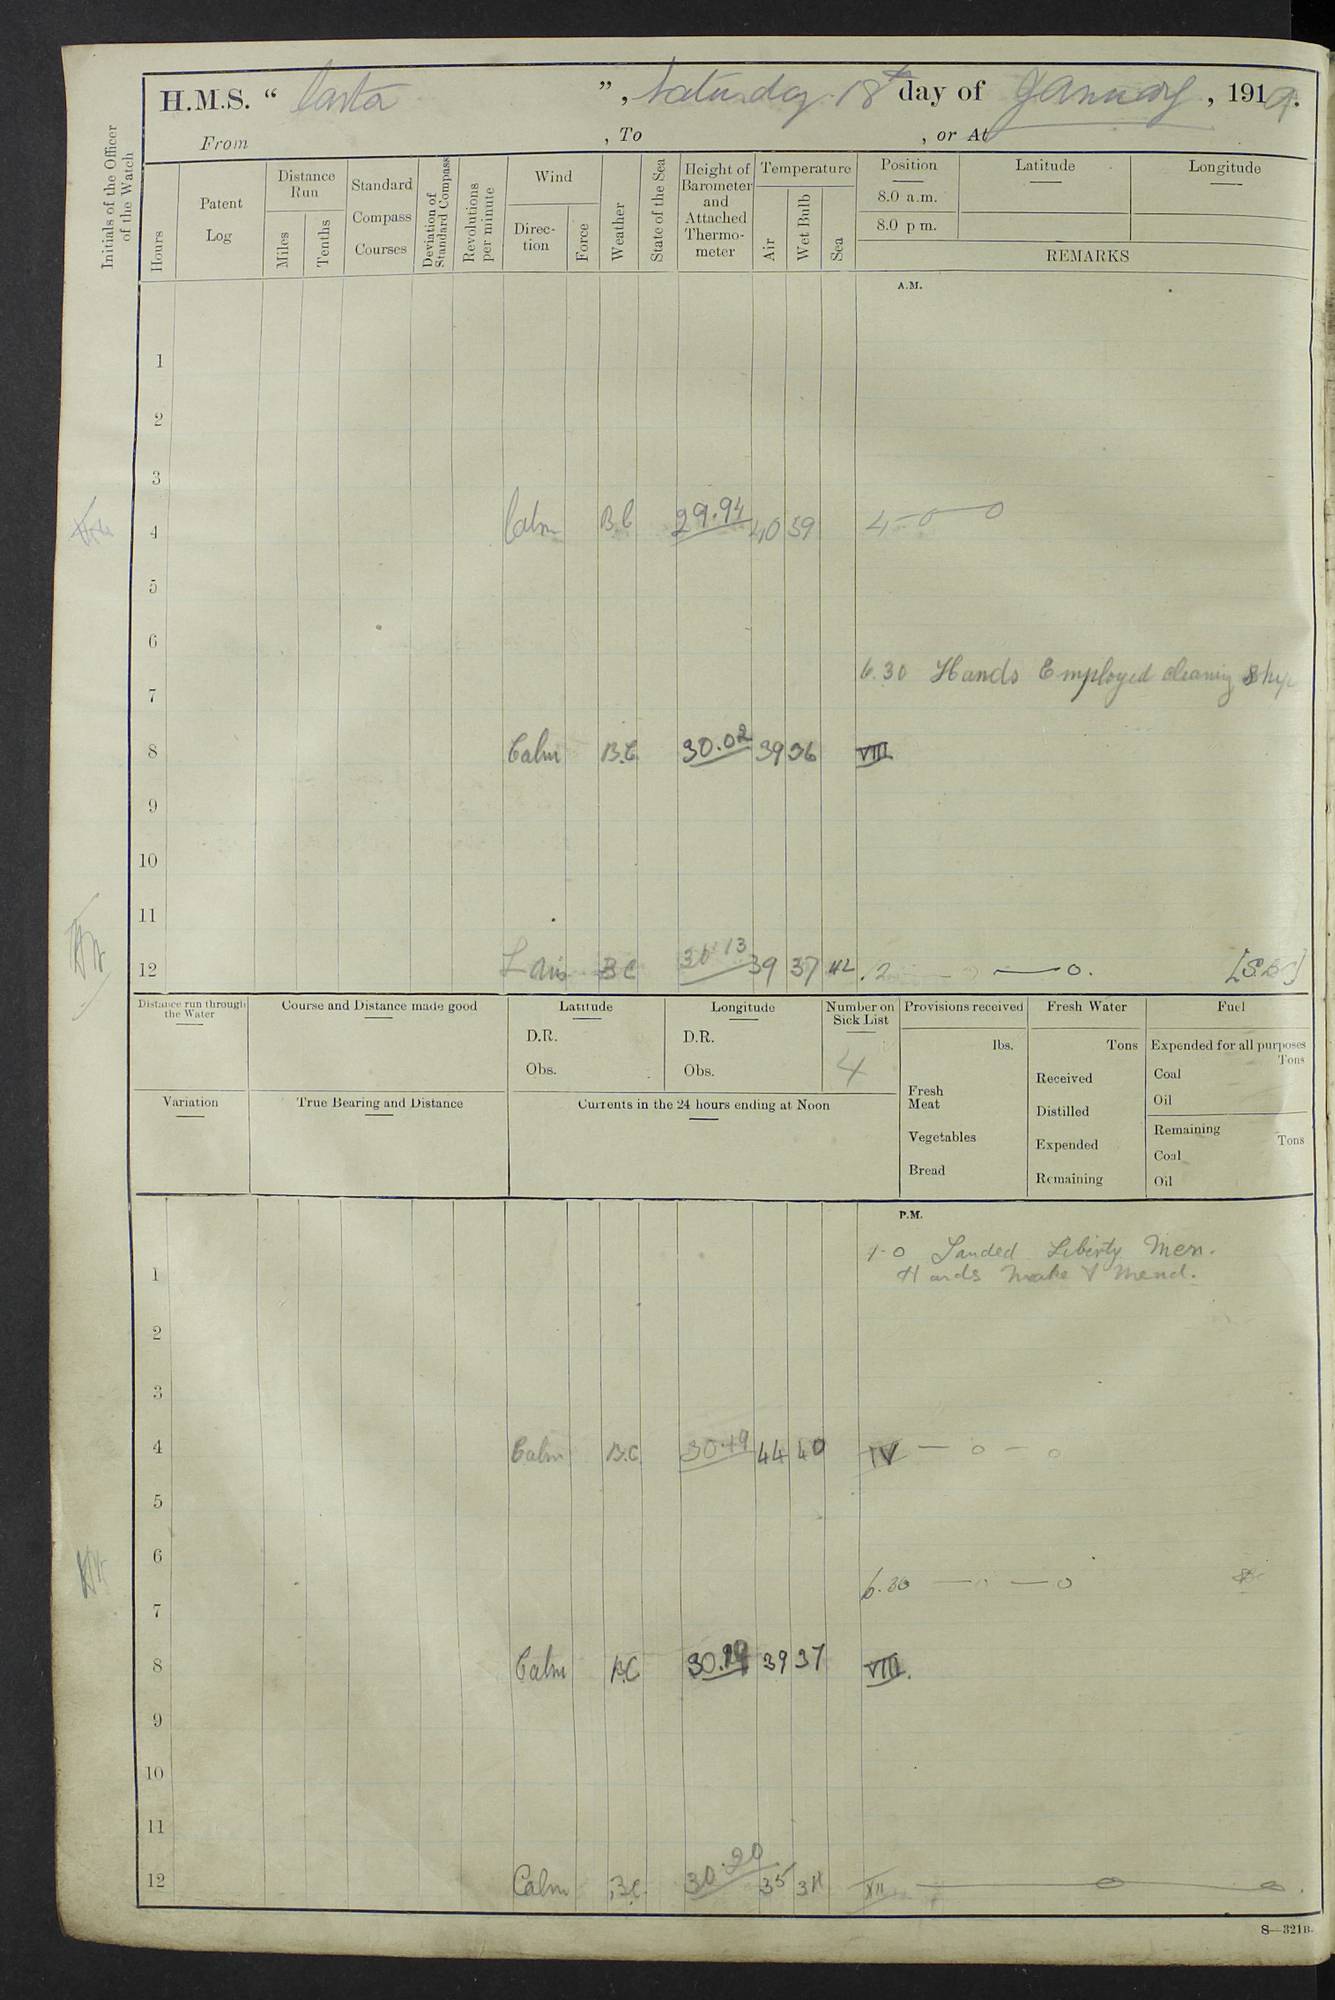 H.M.S. “ Casta ”, Saturday 18th day of January, 1919.
From , To , or At
Initials of the Officer of the Watch
Hours
Patent Log
Distance Run
Miles
Tenths
Standard Compass Courses
Deviation of Standard Compass
Revolutions per minute
Wind
Direction
Force
Weather
State of the Sea
Height of Barometer and Attached Thermometer
Temperature
Air
Wet Bulb
Sea
Position
Latitude
Longitude
8.0 a.m.
8.0 p m.
REMARKS
A.M.
1
2
3
4 Calm B.C 29.94 40 39 4 - 0 — 0
5
6
6.30 Hands Employed cleaning ship
7
8 Calm B.C. 30.02 39 36 VIII
9
10
11
12 L Airs B C 30 13 39 37 42 12 — 0 — 0.
Distance run through the Water
Course and Distance made good
Latitude
D.R.
Obs.
Longitude
D.R.
Obs.
Number on Sick List
4
Provisions received
lbs.
Fresh Meat
Vegetables
Bread
Fresh Water
Tons
Received
Distilled
Expended
Remaining
Fuel
Expended for all purposes
Tons
Coal
Oil
Remaining
Tons
Coal
Oil
Variation
True Bearing and Distance
Currents in the 24 hours ending at Noon
P.M.
1-0 Landed Liberty Men.
Hands make & mend.
1
2
3
4 Calm B.C. 30.19 44 40 IV — 0 — 0
5
6
6.30 — 0 — 0
7
8 Calm B.C 30.19 39 37 VIII.
9
10
11
12 Calm B.C. 30.20 35 34 XII — 0 — 0.
S—321B.